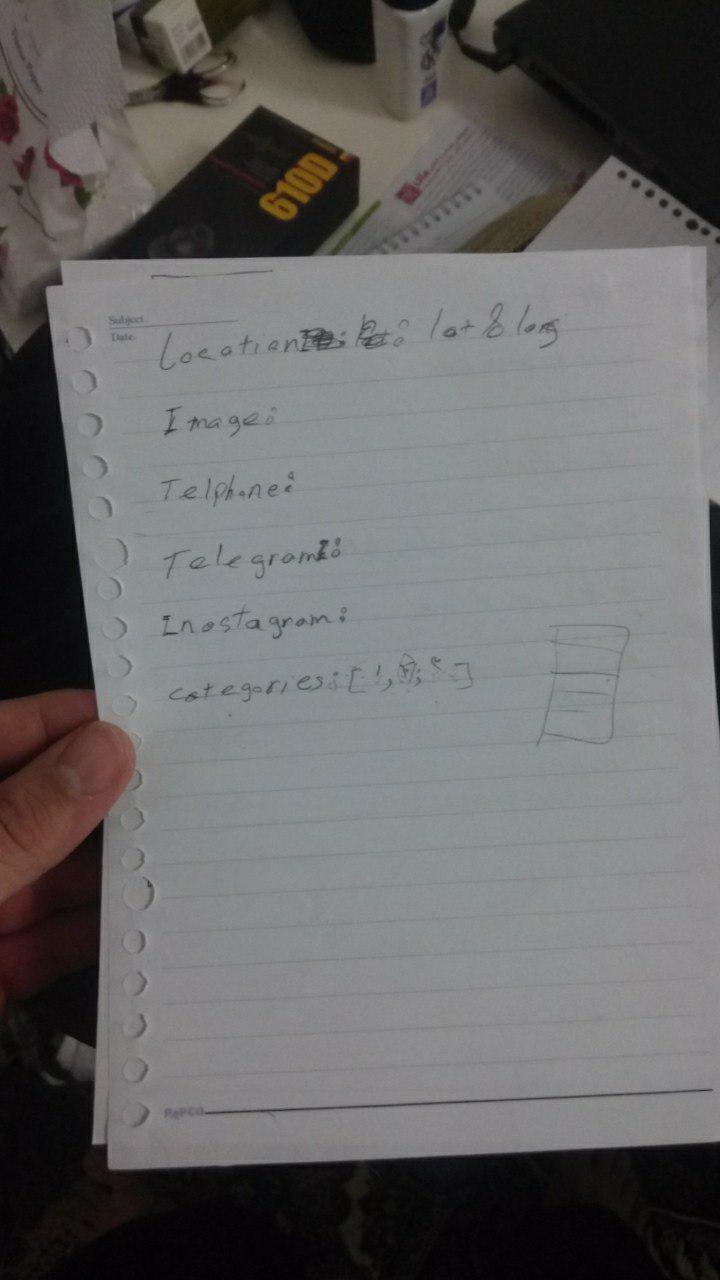 610D
Subject.
Date.
Location : lat & long
Image:
Telphone:
Telegram:
Inostagram:
categories:[ 1,
PAPCO